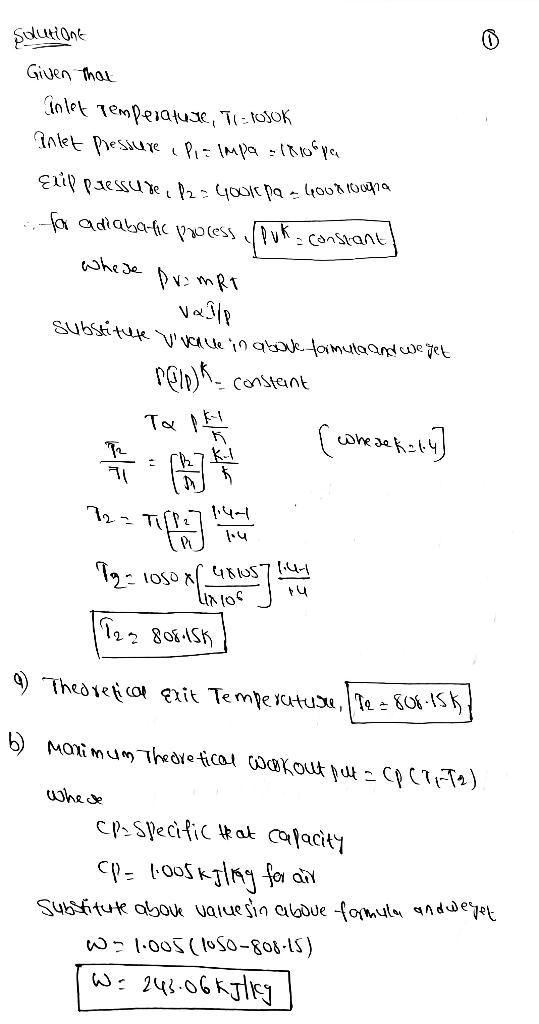 Solution:
①
Given that
Inlet Temperature, T1 = 1050K
Inlet Pressure, P1 = 1MPa = 1×10^6 Pa
Exit pressure, P2 = 400KPa = 400×1000Pa
∴ for adiabatic process, PV^K = constant
where PV = mRT
V∝T/P
substitute 'V' value in above formula and we get
P(T/P)^K = constant
T∝ P^(K-1/K) [where K=1.4]
T2/T1 = [P2/P1]^(K-1/K)
T2 = T1[P2/P1]^(1.4-1/1.4)
T2 = 1050×[4×10^5/1×10^6]^(1.4-1/1.4)
T2 = 808.15K
a) Theoretical exit Temperature, T2 = 808.15K
b) Maximum Theoretical Workout put = CP(T1-T2)
where
CP = Specific Heat capacity
CP = 1.005 KJ/Kg for air
Substitute above values in above formula and we get
W = 1.005(1050-808.15)
W = 243.06 KJ/Kg